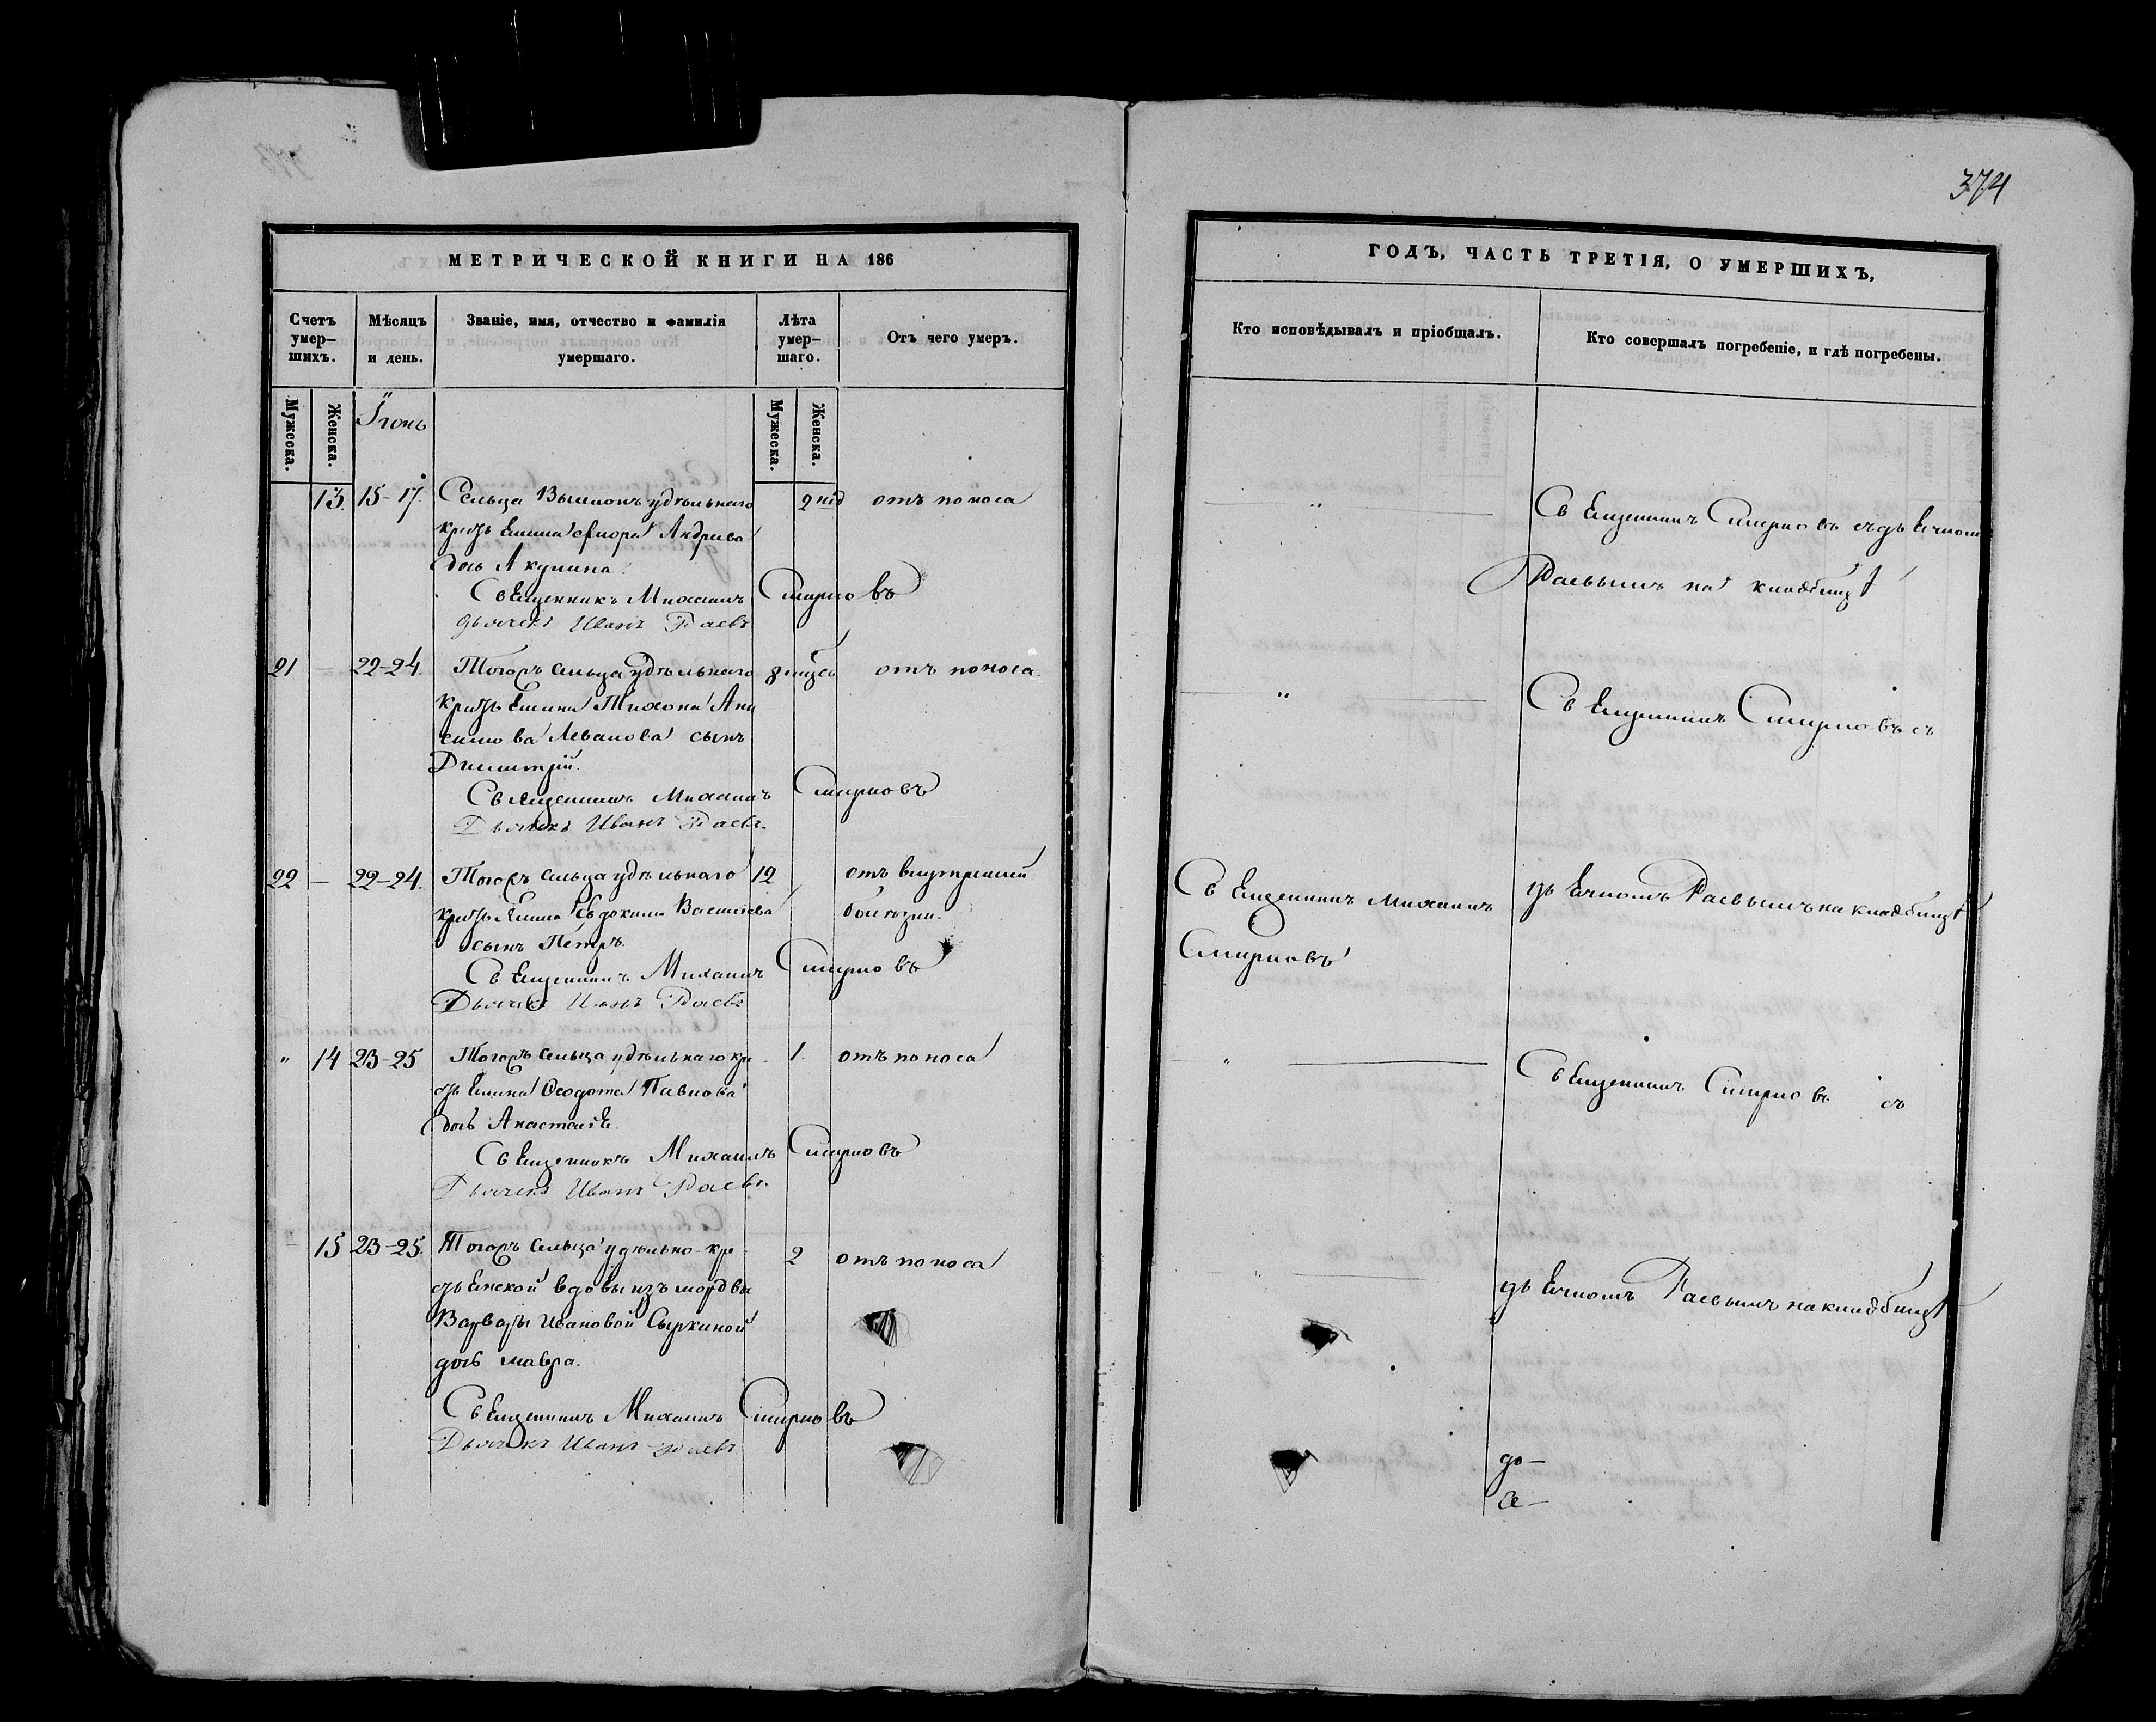 374
МЕТРИЧЕСКОЙ КНИГИ НА 186
Счетъ умер-шихъ.
Мѣсяцъ и день.
Званіе, имя, отчество и фамилія умершаго.
Лѣта умер-шаго.
Отъ чего умеръ.
Мужеска.
Женска.
Мужеска.
Женска.
Іюнь
13. 15-17. Сельца удѣльнаго 2 нед отъ поноса
Андреева
дочь Акулина.
Священникъ Михаилъ Смирновъ
Дьячекъ Иванъ Раевъ
21 — 22-24. Тогожъ сельца удѣльнаго 8 отъ поноса.
Тихона Ани
симова Леванова сынъ
Димитрій.
Священникъ Михаилъ Смирновъ
Дьячекъ Иванъ Раевъ.
22 — 22-24. Тогожъ сельца удѣльнаго 12 отъ внутренней
Евдокима Васильева болѣзни.
сынъ Петръ.
Священникъ Михаилъ Смирновъ
Дьячекъ Иванъ Раевъ
" 14 23-25 Тогожъ сельца удѣльнаго кре 1. отъ поноса
Ѳеодота Павлова
дочь Анастасія.
Священникъ Михаилъ Смирновъ
Дьячекъ Иванъ Раевъ.
— 15 23-25. Тогожъ сельца удѣльно-кре- 2 отъ поноса
стьянской вдовы изъ мордвы
Варвары Ивановой Сыркиной
дочь Мавра.
Священникъ Михаилъ Смирновъ
Дьячекъ Иванъ Раевъ
ГОДЪ, ЧАСТЬ ТРЕТІЯ, О УМЕРШИХЪ,
Кто исповѣдывалъ и пріобщалъ.
Кто совершалъ погребеніе, и гдѣ погребены.
" Священникъ Смирновъ съ дьячкомъ
Раевымъ на кладбищѣ
" Священникъ Смирновъ съ
Священникъ Михаилъ дьячкомъ Раевымъ на кладбищѣ
Смирновъ
" Священникъ Смирновъ съ
" дьячкомъ Раевымъ на кладбищѣ
до—